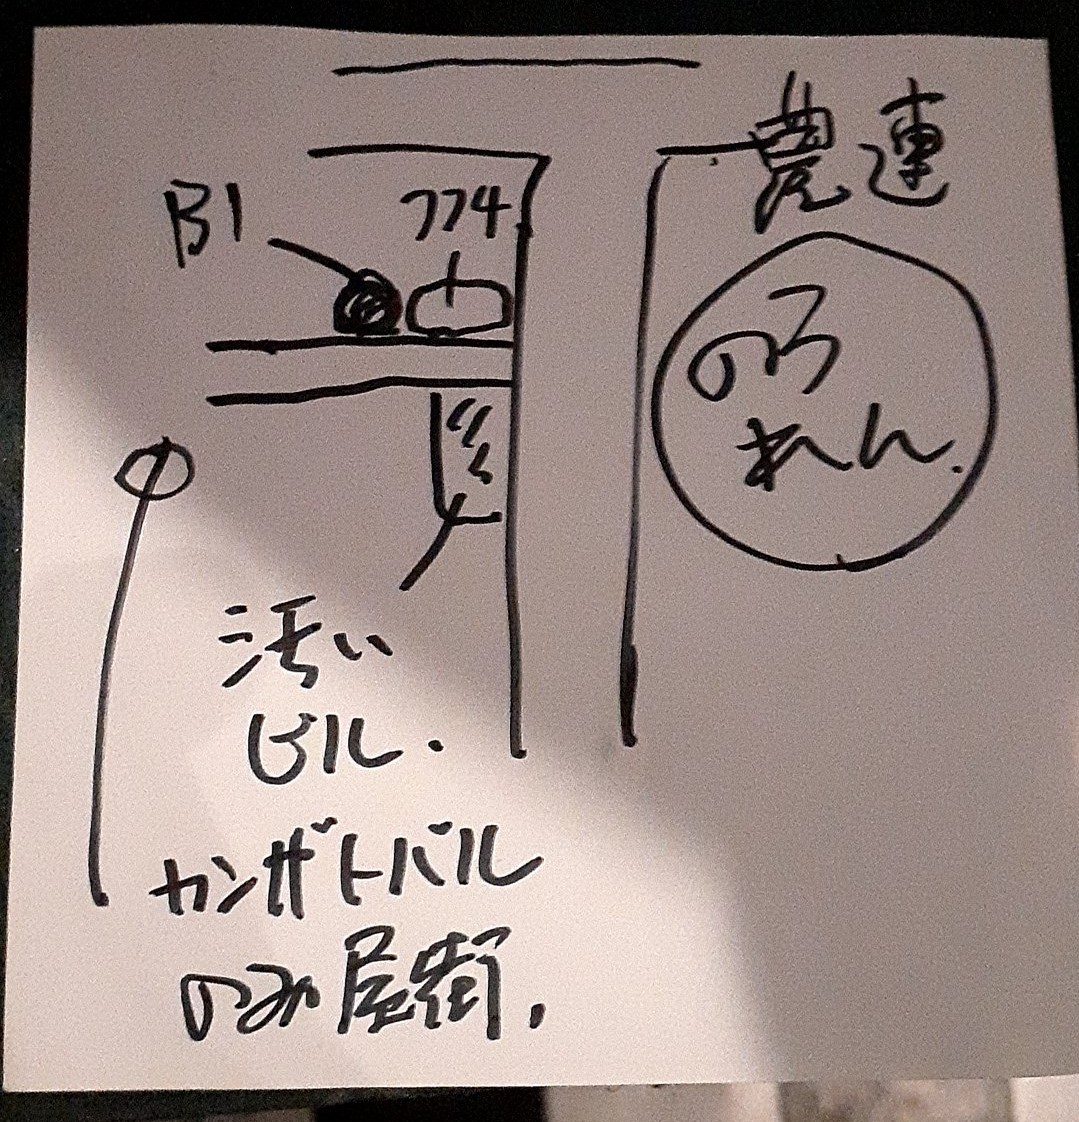 農連
B1
774
のう
れん.
汚い
ビル.
カンザトバル
のみ屋街.